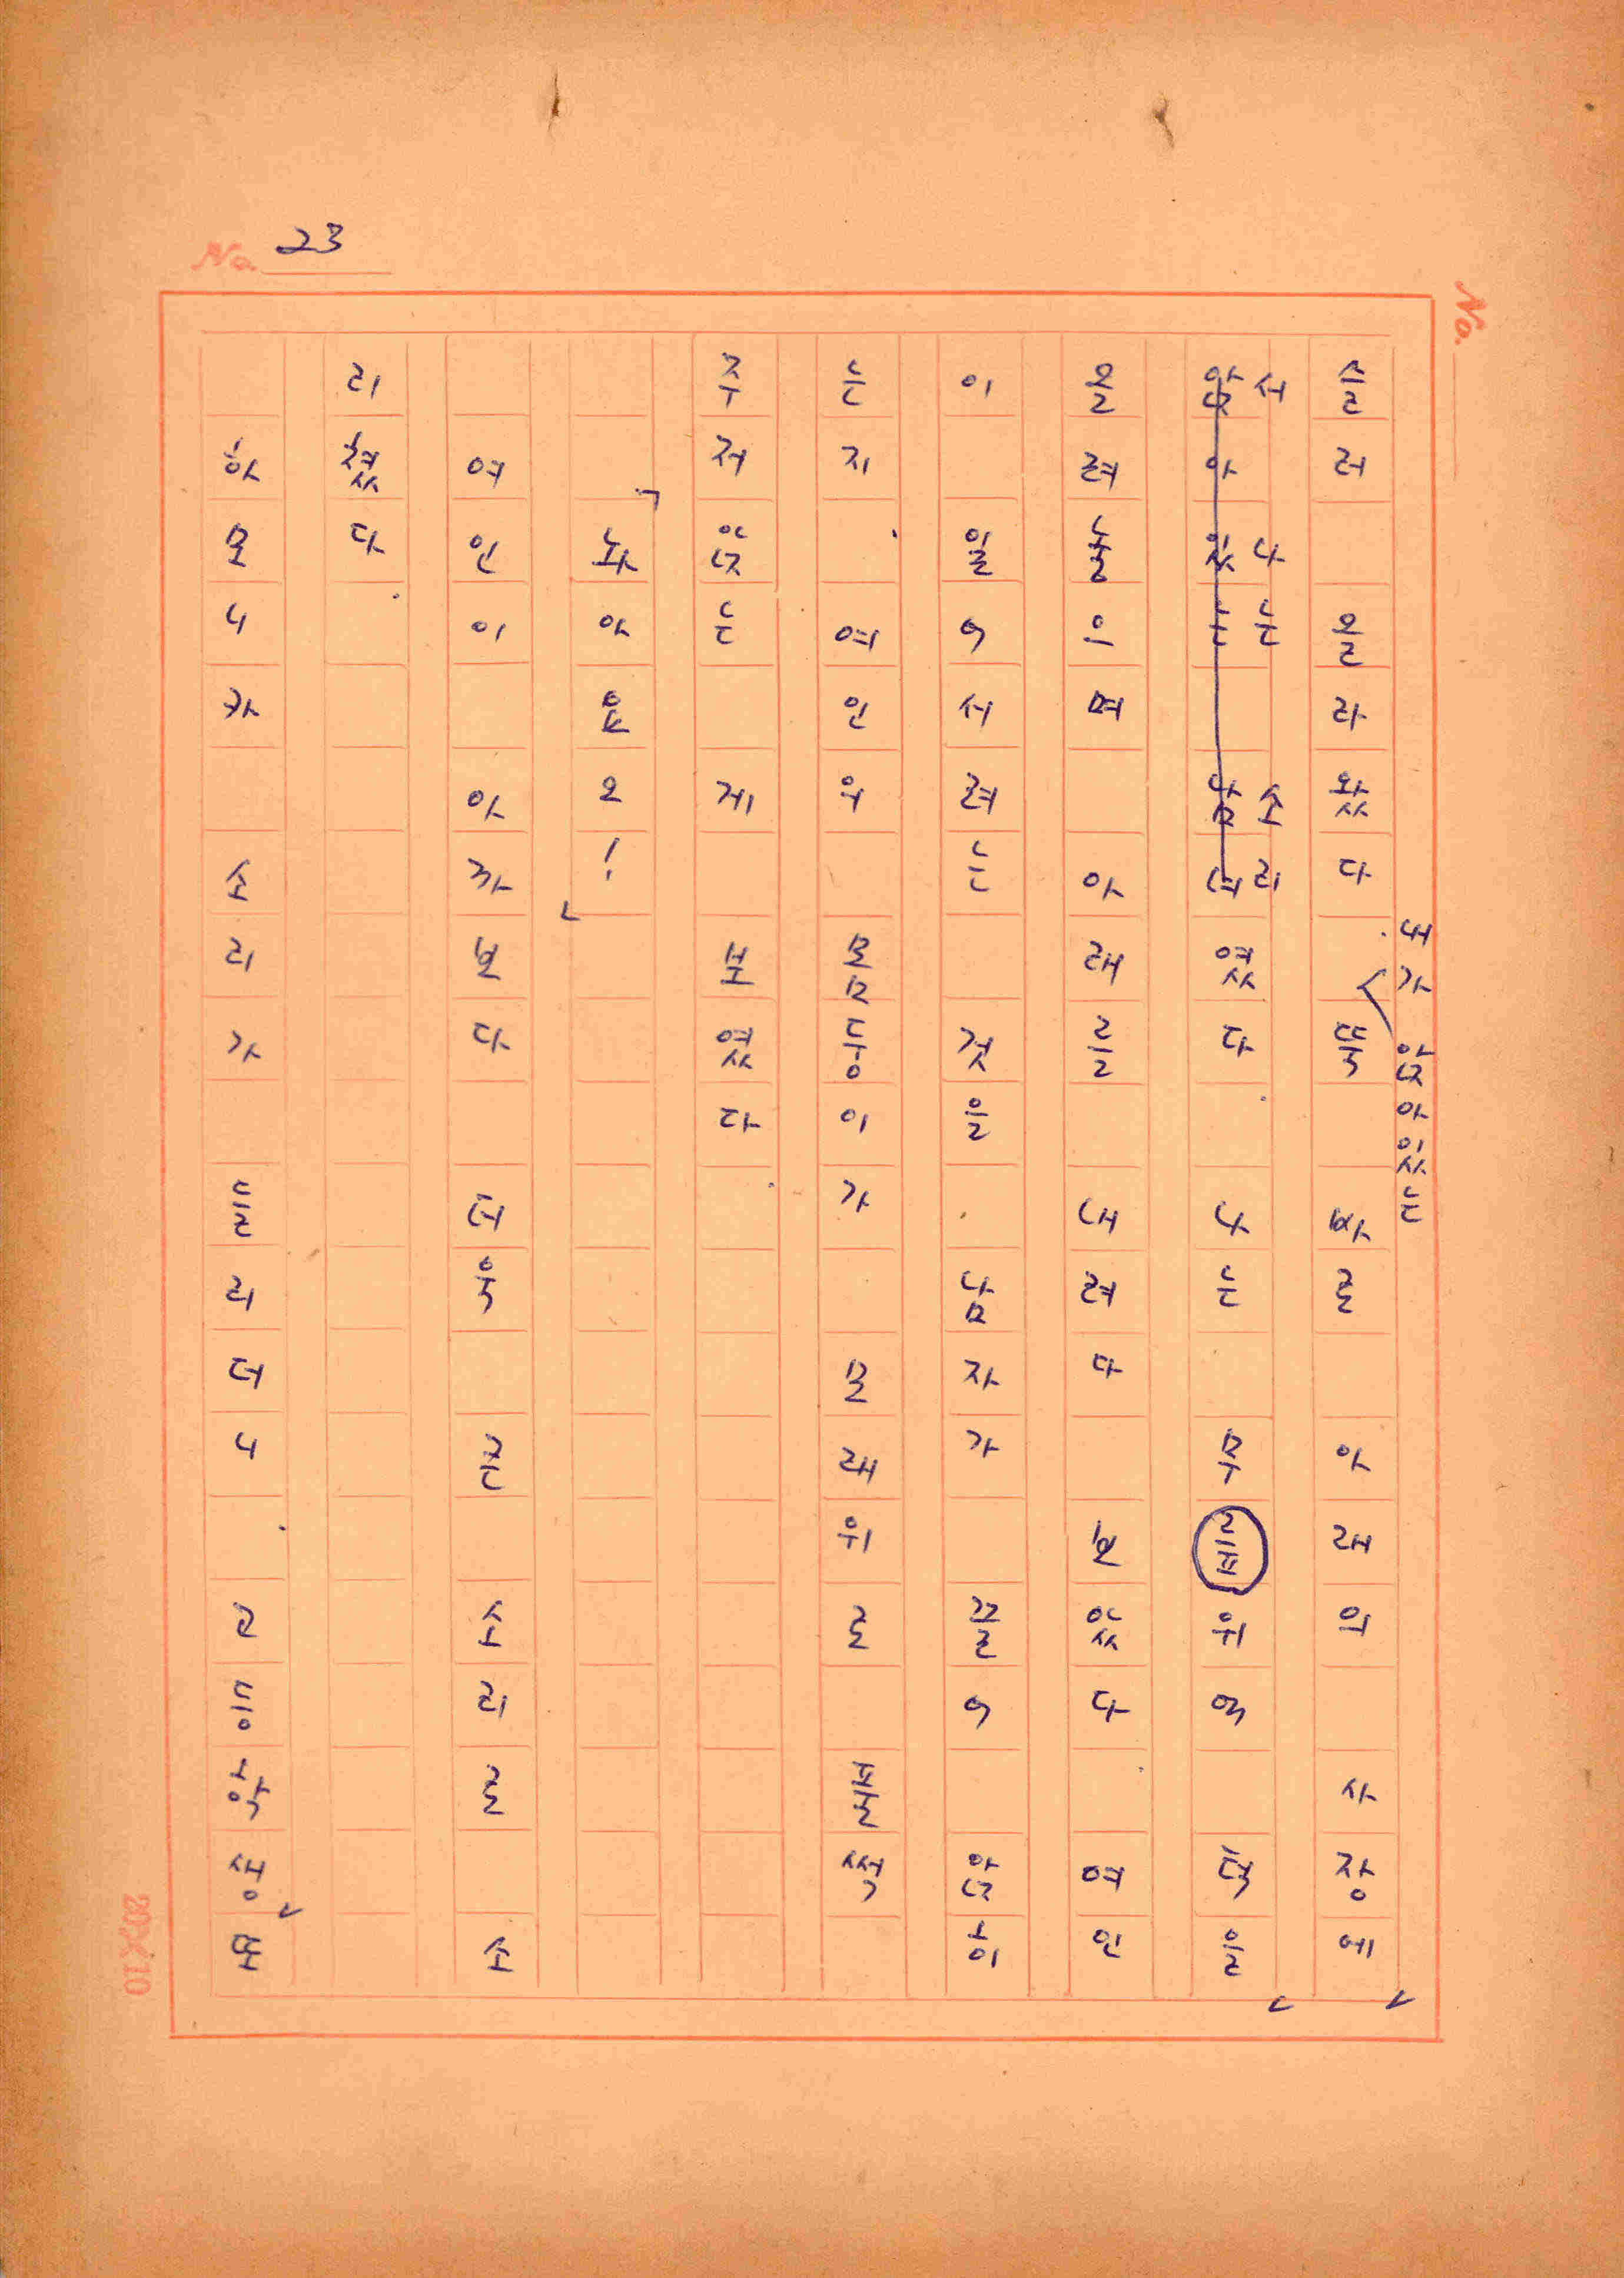 No. 23
No.
내가 앉아있는
슬러 올라왔다. 뚝 바로 아래의 사장에
서 나는 소리
앉아 있는 남녀였다. 나는 무릎위에 턱을
올려놓으며 아래를 내려다 보았다. 여인
이 일어서려는 것을, 남자가 끌어 앉히
는지, 여인의 몸뚱이가 모래위로 털썩
주저앉는 게 보였다.
「놔아 요!」
여인이 아까보다 더욱 큰 소리로 소
리쳤다.
하모니카 소리가 들리더니, 고등학생 또
20X10